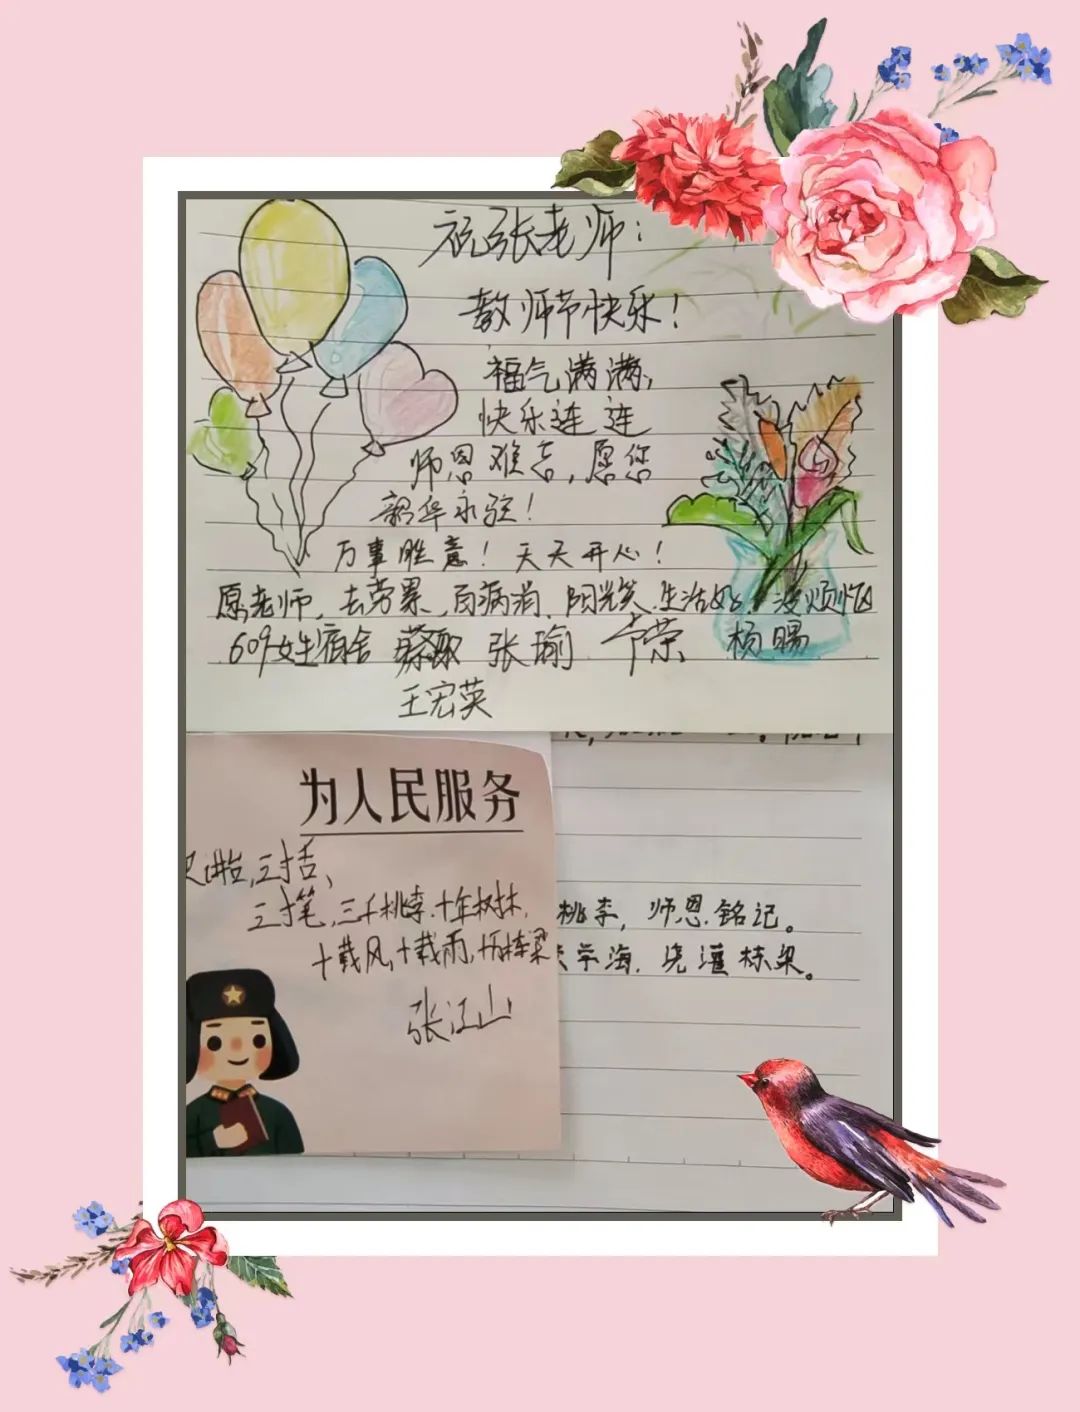 祝张老师：
教师节快乐！
福气满满，
快乐连连
师恩难忘，愿您
韶华永驻！
万事胜意！天天开心！
愿老师，去劳累，百病消，阳光笑，生活好，没烦恼
609女生宿舍 张瑜 荣 杨暘
王宏英
为人民服务
尺讲台，三寸舌、
三寸笔，三千桃李，十年树木，
十载风，十载雨，十万栋梁
张江山
桃李，师恩铭记。
学海，浇灌栋梁。